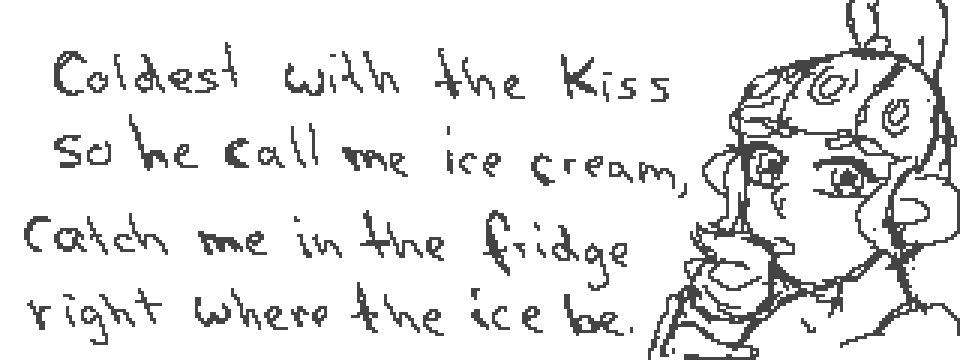 Coldest with the Kiss
so he call me ice cream,
Catch me in the fridge
right where the ice be.